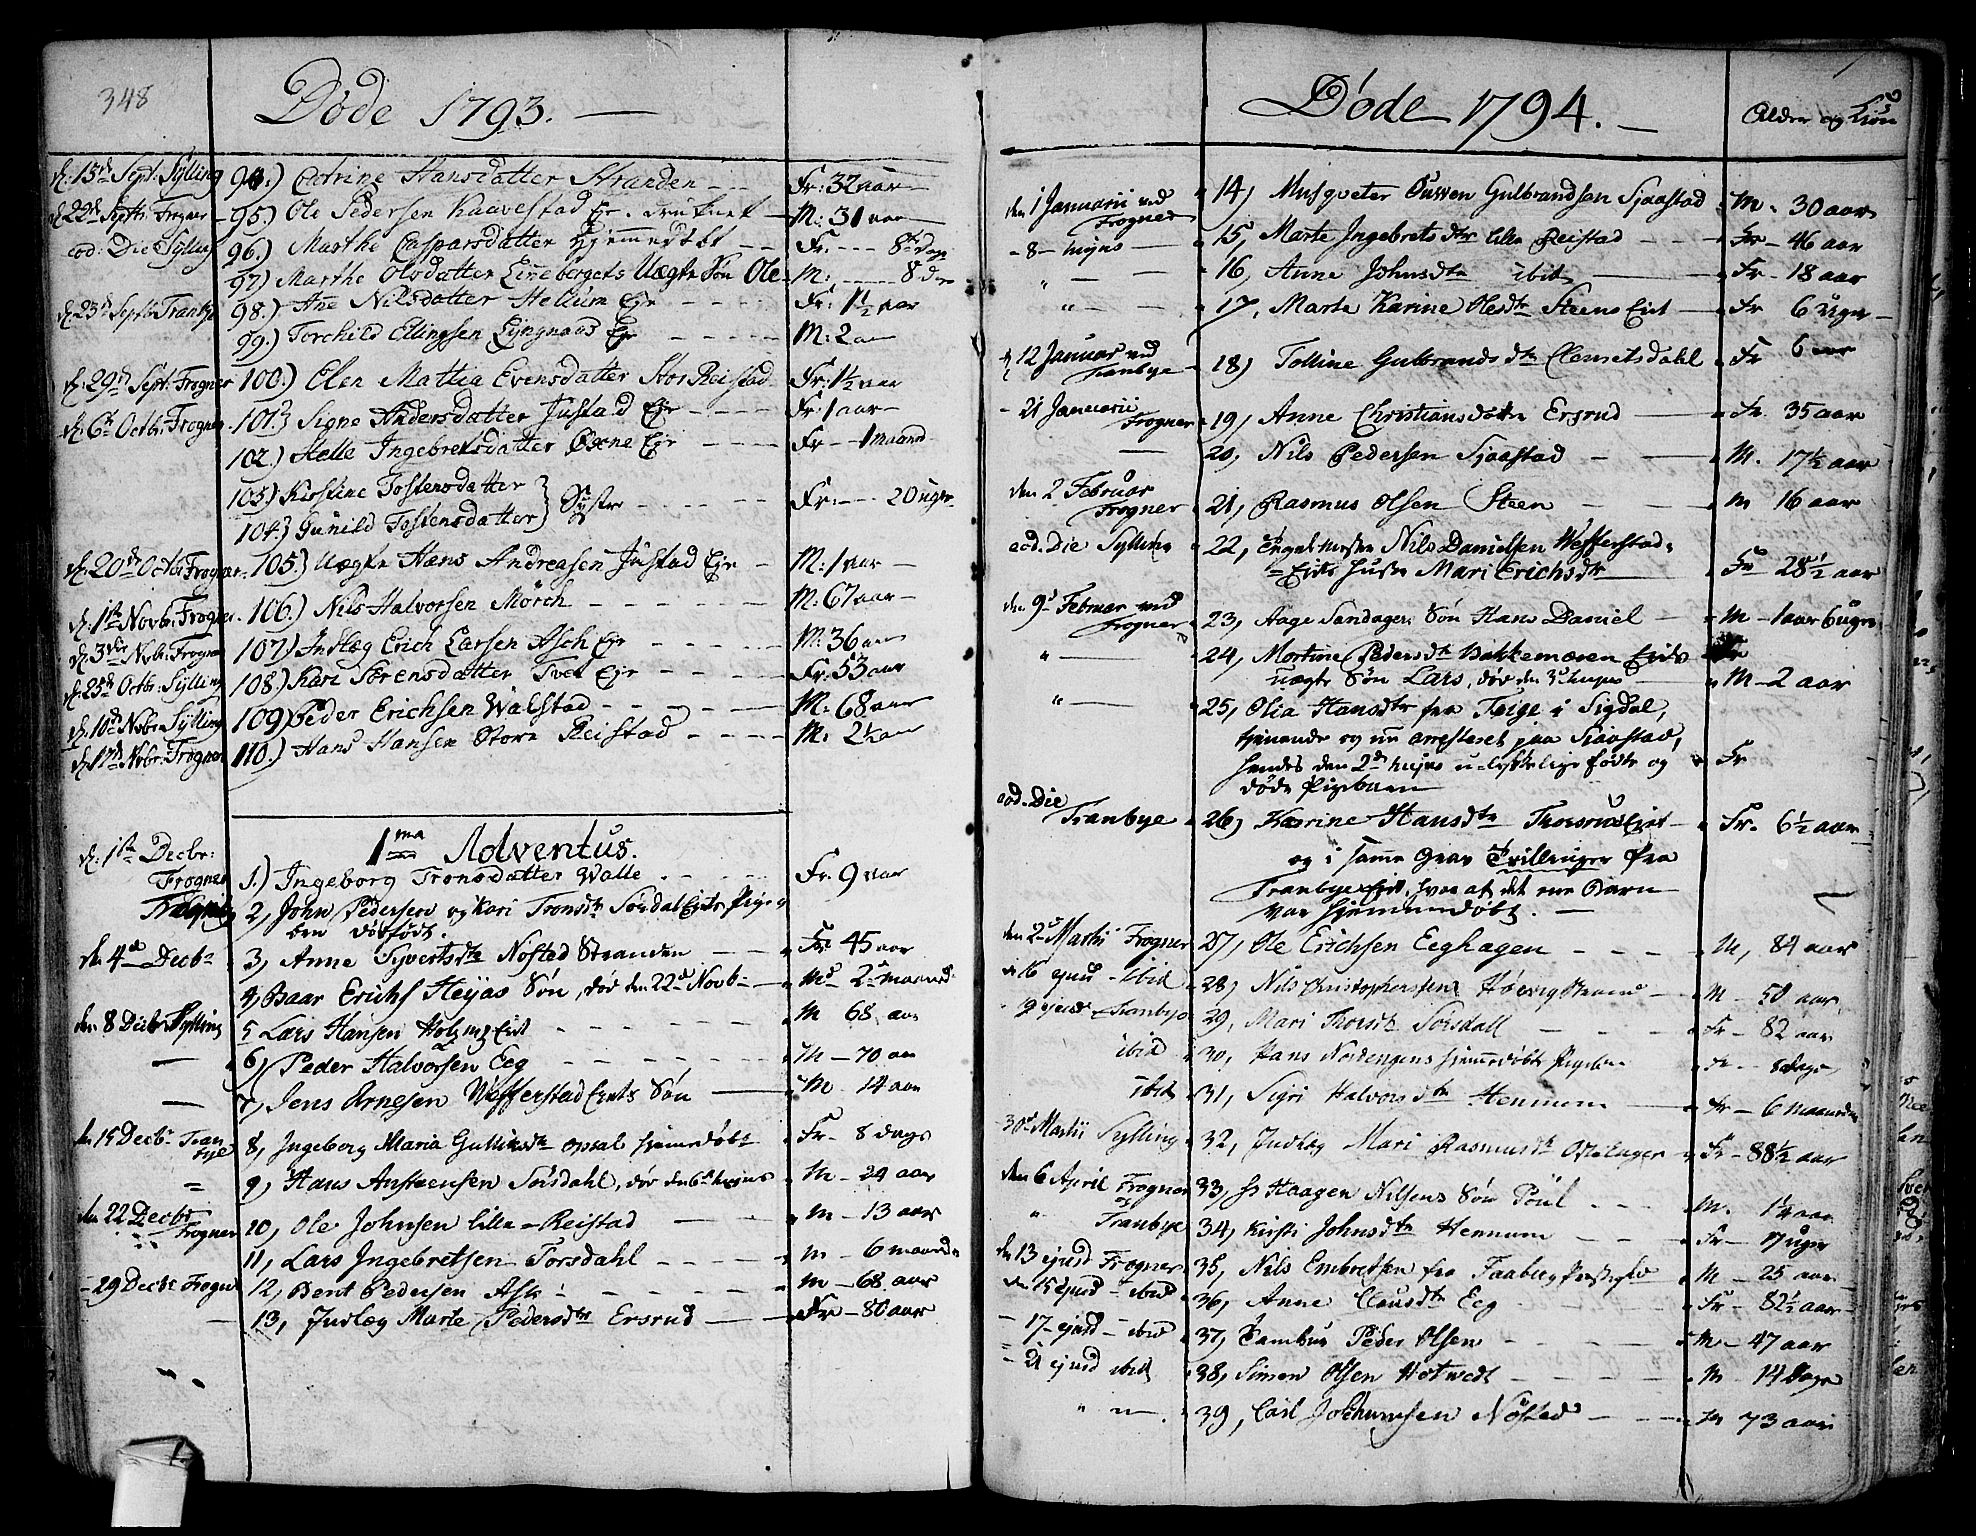 348
Døde 1793.
d: 15de Sept: Sylling 94.) Catrine Hansdatter Stranden Fr: 32 aar
d. 22de Septbr: Frogner 95.) Ole Pedersen Kaavestad Eje. druknet M: 31 aar
eod: Die Sylling 96.) Marthe Caspersdatter Hjemmedøbt Fr: 8te dage
97) Marthe Olsdatter Uægte Søn Ole M: 8 dage
d: 23de Septbr Tranbye 98.) Ane Nilsdatter Hellum Eje Fr: 1½ aar
99) Torchild Ellingsen Lyngnaas Eje M: 2 aar
d: 29de Sept: Frogner 100.) Elen Mattia Evensdatter Stor Reistad Fr: 1½ aar
d: 6te Octbr: Frogner 101.) Signe Andersdatter Justad Eje Fr: 1 aar
102.) Helle Ingebretsdatter Eje Fr 1 maaned
103) Kirstine Tostensdatter
104.) Gunild Tostensdatter Fr: 20 uger
d: 20de Octbr Frogner 105.) Uægte Hans Andreasen Justad Eje M: 1 aar
d: 1te Novbr: Frogner 106.) Nils Halvorsen Mörch M: 67 aar
d: 3die Nvbr: Frogner 107.) Indlæg Erich Larsen Asch Eje M: 36 aar
d: 25de Octbr: Sylling 108.) Kari Sørensdatter Tvet Eje Fr: 53 aar
d. 10de Nobr: Sylling 109) Peder Erichsen Walstad M: 68 aar
d: 17de Nvbr: Frogner 110.) Hans Hansen Store Reistad M: 2½ aar
1ma Adventus.
d: 1te Decbr: Frogner 1.) Ingeborg Tronsdatter Walle Fr: 9 aar
2, John Pedersen og Kari Tronsdtr Sørdal Eiets Pige
børn dødfødt.
den 4de Decbr 3, Anne Syvertsdtr Nøsted Stranden Fr 45 aar
4, Baar Erichs Heyas Søn, død den 22de Novb M 2 maaned
den 8 Decbr Sylling 5 Lars Hansen Eiet M 68 aar
6, Peder Halvorsen Eeg M 70 aar
7, Jens Arnesen Wefferstad Eiets Søn M 14 aar
den 15 Decbr Tranbye 8, Ingeborg Maria Gulliksdtr Opsal hjemmedøbt Fr 8 dage
9, Hans Anstensen Sørsdahl, død den 6te hujus M 24 aar
den 22 Decbr Frogner 10, Ole Johnsen lille Reistad M 13 aar
11, Lars Ingebretsen Torsdahl M 6 maaneder
29 Decbr Frogner 12, Bent Pedersen Ask M 68 aar
13, Indlæg Marte Pedersdtr Ersrud Fr 80 aar
Døde 1794.
Alder og Kiøn
den 1 Januarii ved Frogner 14) Musqveter Gulbrandsen Sjaastad M. 30 aar
8 hujus 15, Marte Ingebretsdtr lille Reistad Fr 46 aar
" 16, Anne Johnsdtr ibid Fr 18 aar
" 17, Marte Karine Olesdtr Steens Eiet Fr 6 Uger
d. 12 Januar ved Tranbye 18) Tolline Gulbrandsdtr Clemetsdahl Fr 6 aar
21 Januarii Frogner 19, Anne Christiansdatter Ersrud Fr 35 aar
20, Nils Pedersen Sjaastad M. 17½ aar
den 2 Februar Frogner 21, Rasmus Olsen Steen M 16 aar
eod. Die Sylling 22, Nils Danielsen Wefferstad
Eiets Hustr Mari Erichsdtr Fr 28½ aar
den 9de Februar ved Frogner 23, Aage Sandagers Søn Hans Daniel M 1 aar 6 uger
" 24, Mortine Pedersdtr Bakkemøren Eiets
uægte Søn Lars, død den 3de hujus M 2 aar
" 25, Olia Hansdtr fra Teige i Sigdal,
tjenende og nu arresteret paa Sjaastad,
hendes den 2den hujus ulykkelige fødte og
døde Pigebarn Fr
eod. Die Tranbye 26, Katrine Hansdtr Thorsrud Eiet Fr. 6½ aar
og i samme Grav Tvillinger fra
Tranbye Eiet, hvoraf det ene Barn
var hjemmedøbt.
den 2de Martii Frogner 27, Ole Erichsen Eeghagen M, 84 aar
d 16 ejusd ibid 28, Nils Christophersens M 50 aar
9 ejusd Tranbye 29, Mari Thorsdtr Sørsdall Fr 82 aar
ibid 30, Hans Nordengens hjemmedøbte Pigebarn Fr 8 dage
ibid 31, Sigri Halvorsdtr Hennum Fr 6 maaneder
30te Martii Sylling 32, Indlæg Mari Rasmusdtr Fr 88½ aar
den 6 April Frogner 33, Hr Haagen Nilsens Søn Poul M. 1¼ aar
" Tranbye 34, Kirsti Johnsdtr Hennum Fr 17 uger
den 13 ejusd Frogner 35, Nils Embretsen fra Faaberg Præstegield M 25 aar
den 15 ejusd ibid 36, Anne Clausdtr Eeg Fr 82½ aar
17 ejusd ibid 37, Tambur Peder Olsen M 47 aar
21 ejusd ibid 38, Simen Olsen Hotvedt M 14 Dage
" 39, Carl Jochumsen Nøsted M 73 aar